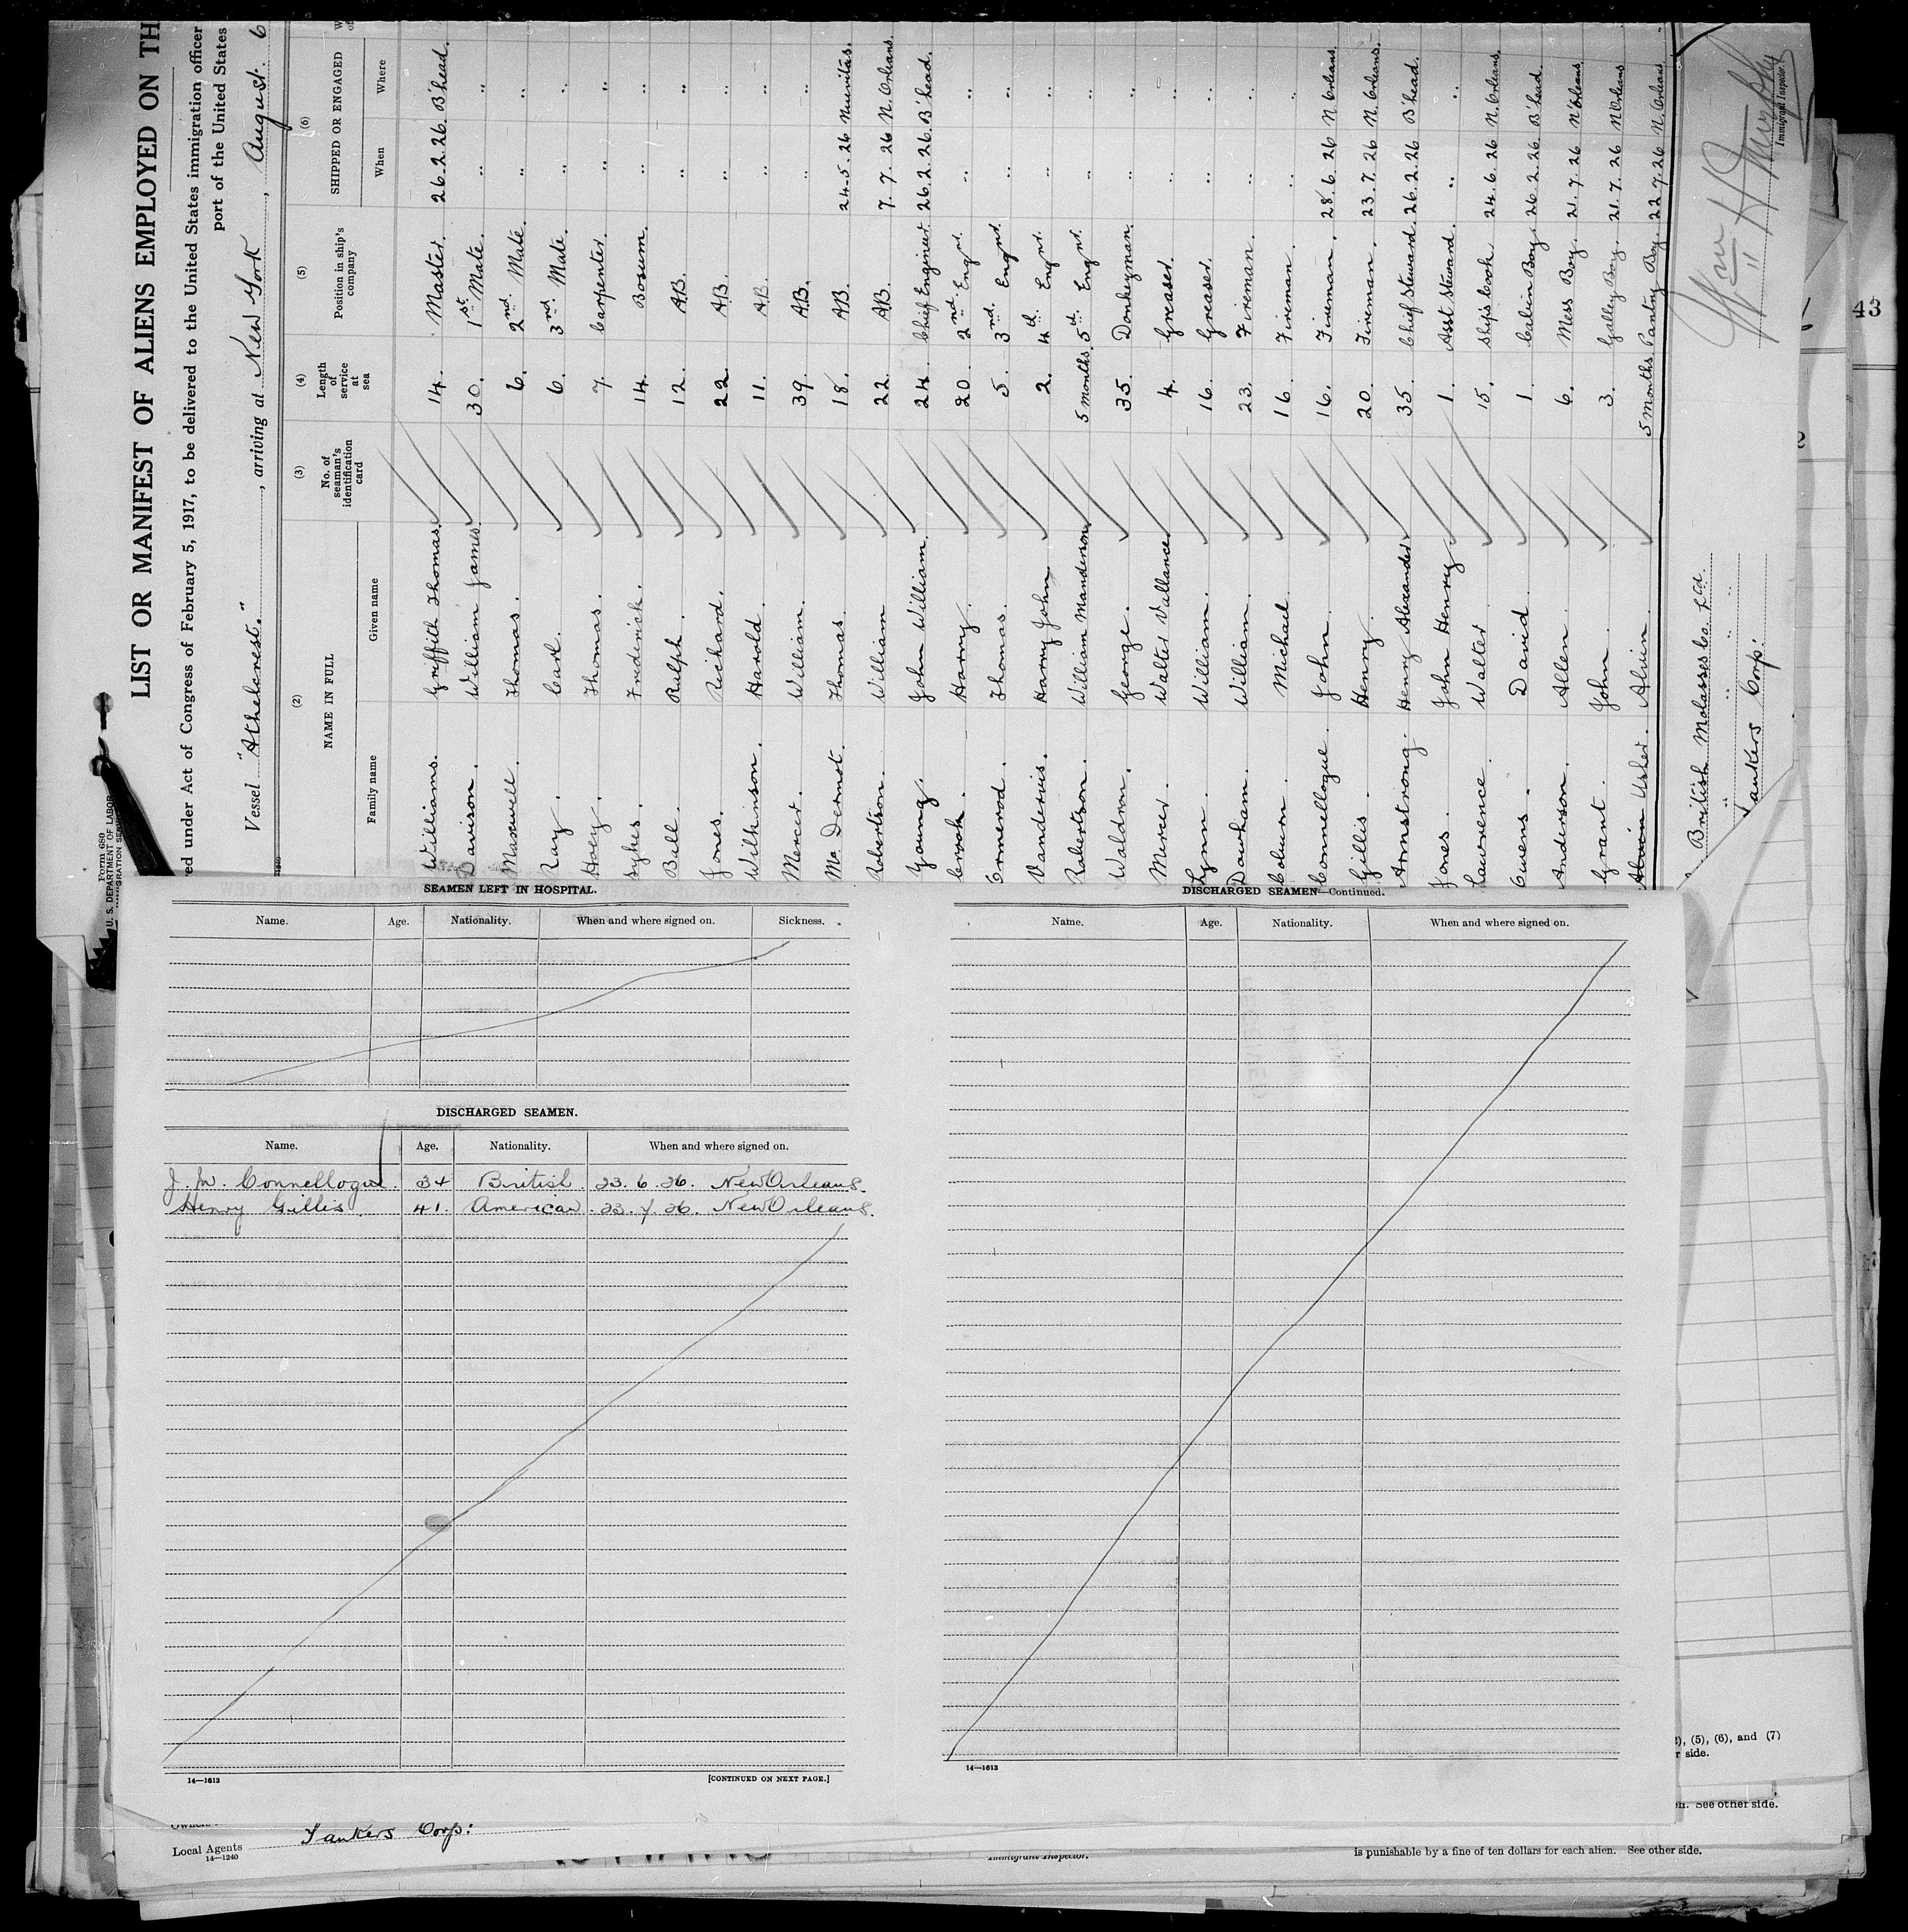 Form 680
U. S. DEPARTMENT OF LABOR
LIST OR MANIFEST OF ALIENS EMPLOYED ON TH
red under Act of Congress of February 5, 1917, to be delivered to the United States immigration officer
port of the United States
Vessel "Athelcrest.", arriving at New York, August. 6
(2) (3) (4) (5) (6)
NAME IN FULL No. of seaman's identification card Length of service at sea Position in ship's company SHIPPED OR ENGAGED
Family name Given name When Where
Williams. Griffith Thomas. 14. Master. 26.2.26. B'head.
Davison. William James. 30. 1st Mate. " "
Maxwell. Thomas. 6. 2nd. Mate. " "
Ruy. Carl. 6. 3nd Mate. " "
Hoey. Thomas. 7. Carpenter. " "
Sykes. Frederick. 14. Bosum. " "
Ball. Ralph. 12. A.B. " "
Jones. Richard. 22. A.B. " "
Wilkinson. Harold. 11. A.B. " "
Mercer. William. 39. A.B. " "
Mc Dermot. Thomas. 18. A.B. 24.5.26
Robertson. William 22. A.B. 7.7.26 N. Orleans.
Young. John William. 24. Chief Engineer 26.2.26. B'head.
Crook. Harry. 20. 2nd. Engnr. " "
Ormerod. Thomas. 5. 3nd. Engnr. " "
Vandervis. Harry John. 2. 4th. Engnr. " "
Robertson. William Manderson. 5 months. 5th. Engnr. " "
Waldron. George. 35. Donkeyman. " "
Mercer. Walter Vallance. 4. Greaser. " "
Lynn. William. 16. Greaser. " "
Dawham. William. 23. Fireman. " "
Coburn. Michael 16. Fireman. " "
Connellogue. John. 16. Fireman. 28.6.26 N Orleans
Gillis. Henry. 20. Fireman. 23.7.26 N. Orleans.
Armstrong. Henry Alexander 35. Chief Steward. 26.2.26 B'head.
Jones. John Henry. 1. Asst Steward. " "
Lawrence. Walter. 15. Ship's Cook 24.6.26 N. Orleans.
Owens. David. 1. Cabin Boy. 26.2.26. B'head.
Anderson. Allen. 6. Mess Boy. 21.7.26 N Orleans
Grant. John. 3. Galley Boy. 21.7.26 N Orleans
Alwin Usher. Alwin. 5 Months Pantry Boy. 22.7.26 N. Orleans
British Molasses Co. Ltd.
" " " "
Tankers Corp:
Wm H Murphy
Immigrant Inspector.
43
SEAMEN LEFT IN HOSPITAL.
Name. Age. Nationality. When and where signed on. Sickness.
DISCHARGED SEAMEN.
Name. Age. Nationality. When and where signed on.
J. M. Connellogue. 34 British 23.6.26. New Orleans.
Henry Gillis. 41. American. 23.7.26. New Orleans.
14—1613 [CONTINUED ON NEXT PAGE.]
DISCHARGED SEAMEN—Continued.
Name. Age. Nationality. When and where signed on.
14—1613
), (5), (6), and (7)
r side.
See other side.
Local Agents Tankers Corp:
14—1240
Immigrant Inspector.
is punishable by a fine of ten dollars for each alien. See other side.